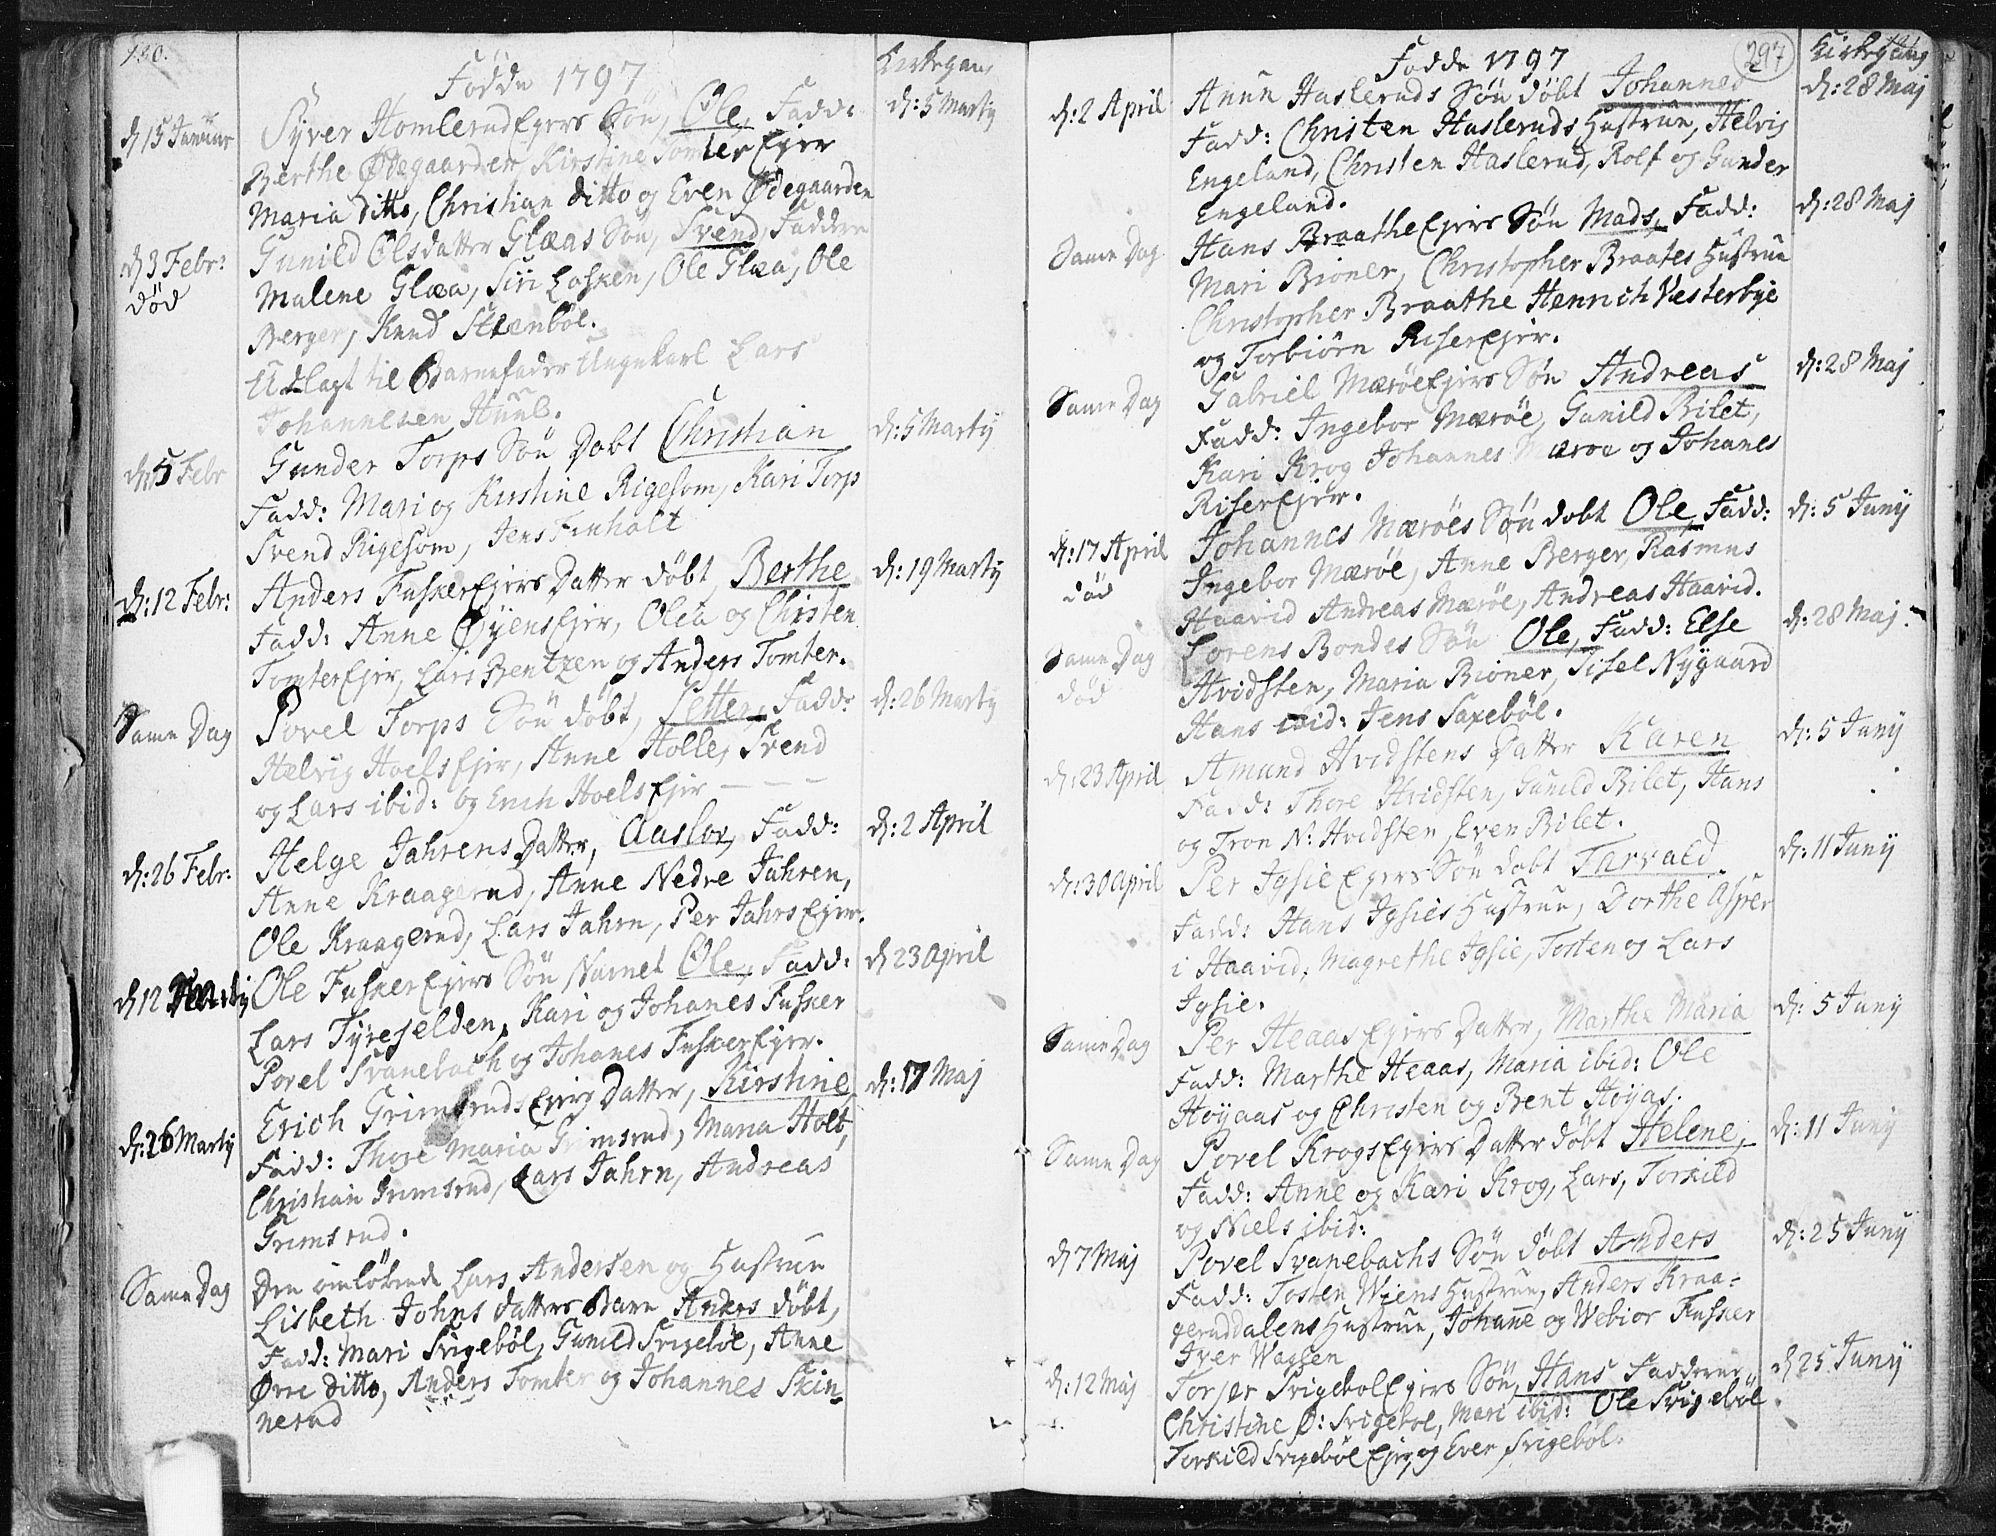 130.
Fødde 1797
Kirkegang
d: 15 Januar
Syver Homlerud Ejers Søn, Ole, Fadd:
d: 5 Marty
Berthe Ødegaarden, Kirstine Tomter Ejer
Maria ditto, Christian ditto og Even Ødegaarden
d 3 Febr:
Gunild Olsdatter Glæas Søn, Svend, Faddere
død
Malene Glæa, Siri Løsken, Ole Glæa, Ole
Berger, Knud Steenbøl.
Udlagt til Barnefader Ungekarl Lars
Johannesen
d: 5 Febr
Gunder Torps Søn Døbt Christian
d: 5 Marty
Fadd: Mari og Kirstine Rigesom, Kari Torp
Svend Rigesom, Jens Finholt
d: 12 Febr:
Anders Fusker Ejers Datter døbt, Berthe
d: 19 Marty
Fadd: Anne Øyens Ejer, Olea og Christen
Tomter Ejer, Lars Bentzen og Anders Tomter.
Same Dag
Povel Torps Søn døbt, Petter, Fadd:
d: 26 Marty
Helvig Hoels Ejer, Anne Holle, Svend
og Lars ibid: og Erich Hoels Ejer
d: 26 Febr:
Helge Jahrens Datter, Aaslov, Fadd:
d: 2 April
Anne Kraagerud, Anne Nedre Jahren,
Ole Kraagerud, Lars Jahrn, Per Jahrs Ejer.
d 12 Marty
Ole Fusker Ejers Søn Navnet Ole, Fadd:
d 23 April
Lars Fyreselden, Kari og Johanes Fusker
Povel Svanebach og Johanes Fusker Ejer.
d: 26 Marty
Erich Grimsruds Ejers Datter, Kirstine
d: 17 Maj
Fadd: Thore Maria Grimsrud, Maria Holt,
Christian Grimsrud, Lars Jahrn, Andreas
Grimsrud.
Same Dag
Den omløbende Lars Andersen og Hustrue
Lisbeth Johns datters Barn Anders døbt,
Fadd: Mari Svigebøl, Gunild Svigebøl, Anne
Øvre ditto, Anders Tomter og Johannes Skin-
nerud
297
Fødde 1797
Kirkegang
d: 2 April
Anun Hasleruds Søn døbt Johannes
d: 28 Maj
Fadd: Christen Hasleruds Hustrue, Helvig
Engeland, Christen Haslerud, Rolf og Gunder
Engeland.
Same Dag
Hans Braathe Ejers Søn Mads, Fadd:
d: 28 Maj
Mari Bioner, Christopher Braates Hustrue
Christopher Braathe Henrich Vesterbye
og Torbiørn Riser Ejer.
Same Dag
Gabriel Mærøe Ejers Søn Andreas
d: 28 Maj
Fadd: Ingebor Mærøe, Gunild Bilet,
Kari Krog Johannes Mærøe og Johanes
Riser Ejer.
d: 17 April
Johannes Mærøes Søn døbt Ole, Fadd:
d: 5 Juny
død
Ingebor Mærøe, Anne Berger, Rasmus
Haavid Andreas Mærøe, Andreas Haavid.
Same Dag
Lorens Bondes Søn Ole, Fadd: Else
d: 28 Maj.
død
Hvidsten, Maria Bioner, Sisel Nygaard
Hans ibid: Jens Saxebøl.
d: 23 April
Amund Hvidstens Datter Karen
d: 5 Juny
Fadd: Thore Hvidsten, Gunild Bilet, Hans
og Tron N: Hvidsten, Even Bilet.
d: 30 April
Per Igsie Ejers Søn døbt Tarvald
d: 11 Juny
Fadd: Hans Igsies Hustrue, Dorthe Asper
i Haavid, Magrethe Igsie, Tosten og Lars
Igsie.
Same Dag
Per Heaas Ejers Datter, Marthe Maria
d: 5 Juny
Fadd: Marthe Heaas, Maria ibid: Ole
Høyaas og Christen og Bent Høyas.
Same Dag
Povel Krogs Ejers Datter døbt Helene,
d: 11 Juny
Fadd: Anne og Kari Krog, Lars, Torkild
og Niels ibid:
d 7 Maj
Povel Svanebachs Søn døbt Anders
d: 25 Juny
Fadd: Tosten Wiens Hustrue, Anders Kraa-
geruddalens Hustrue, Johanne og Webior Fusker
Iver Wagsen
d: 12 Maj
Torjer Svigebøl Ejers Søn, Hans Faddere
d 25 Juny
Christine Ø: Svigebøl, Mari ibid: Ole Svigebøl
Torkild Svigebøl Ejer, og Even Svigebøl.